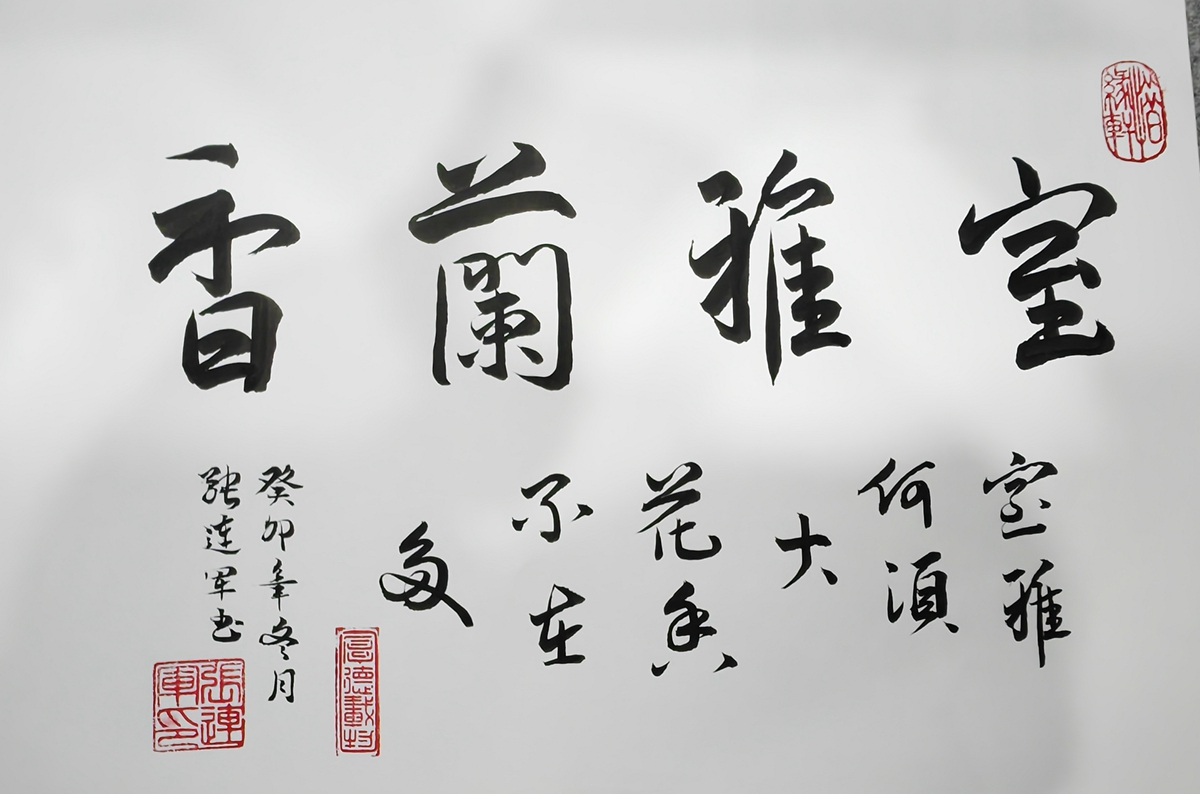 室雅蘭香
室雅
何須
大
花香
不在
多
癸卯年冬月
張連軍书
厚德載物
張連軍印